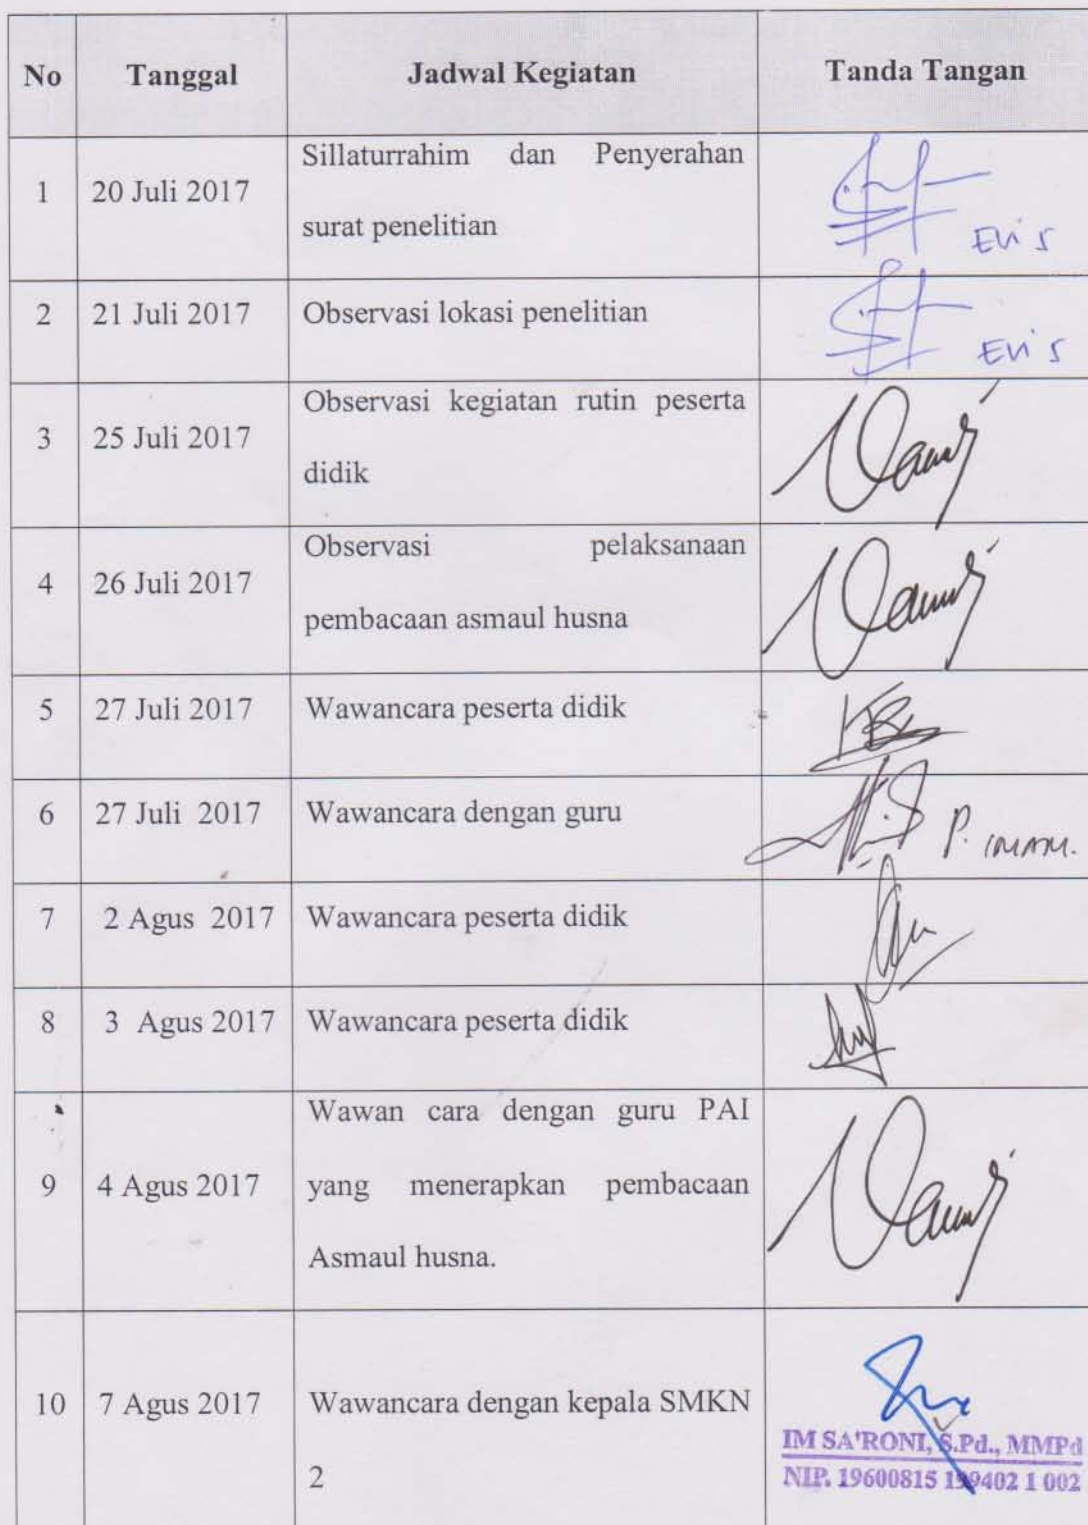 No Tanggal Jadwal Kegiatan Tanda Tangan
1 20 Juli 2017 Sillaturrahim dan Penyerahan
surat penelitian
Evi S
2 21 Juli 2017 Observasi lokasi penelitian
Evi S
3 25 Juli 2017 Observasi kegiatan rutin peserta
didik
4 26 Juli 2017 Observasi pelaksanaan
pembacaan asmaul husna
5 27 Juli 2017 Wawancara peserta didik
6 27 Juli 2017 Wawancara dengan guru P. IMAM.
7 2 Agus 2017 Wawancara peserta didik
8 3 Agus 2017 Wawancara peserta didik
9 4 Agus 2017 Wawan cara dengan guru PAI
yang menerapkan pembacaan
Asmaul husna.
10 7 Agus 2017 Wawancara dengan kepala SMKN
2
IM SA'RONI, S.Pd., MMPd
NIP. 19600815 199402 1 002